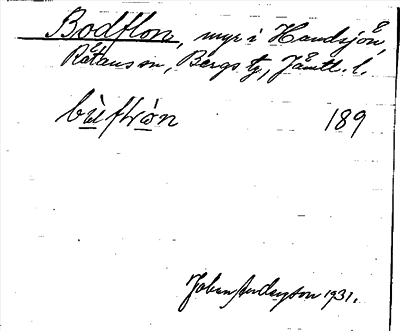 Bodflon, myr i Handsjön,
Rätans sn, Bergs tg, Jämtl. l.
bùftròn 189
Johan Anderson 1931.